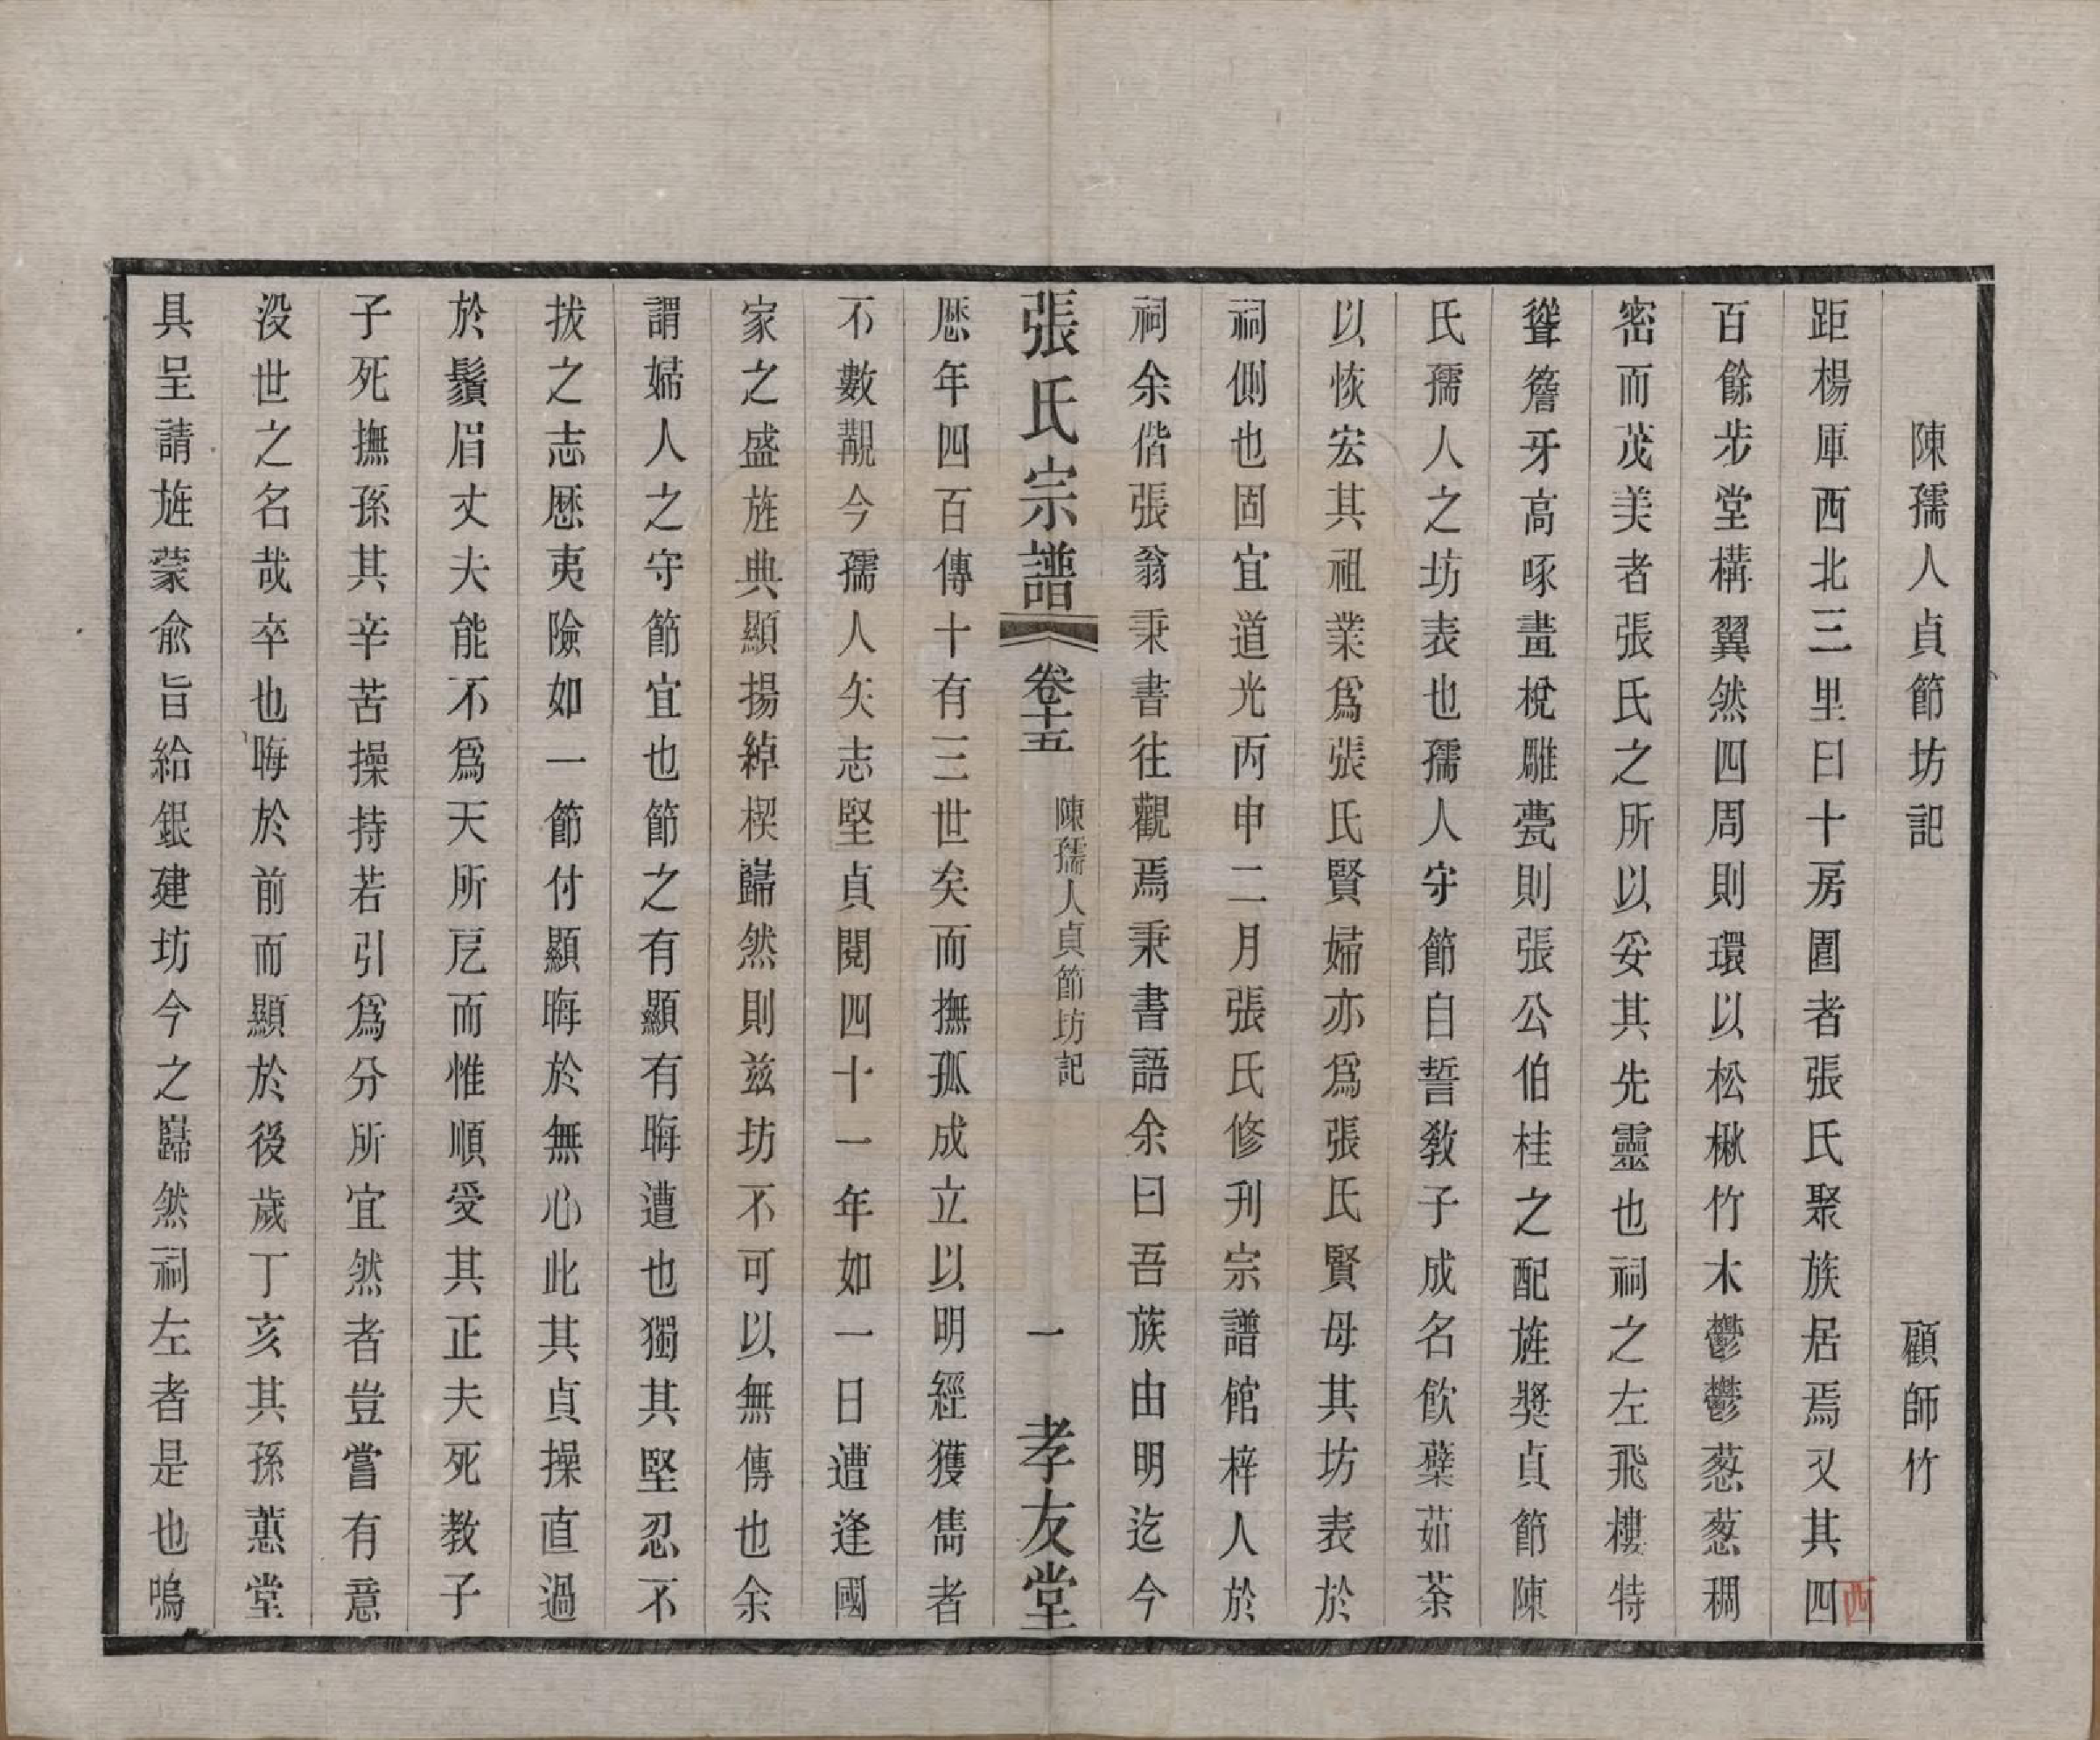 陳孺人貞節坊記　顧師竹
距楊庫西北三里曰十房圍者張氏聚族居焉又其四
西
百餘步堂構翼然四周則環以松楸竹木鬱鬱葱葱稠
密而茂美者張氏之所以妥其先靈也祠之左飛樓特
聳簷牙高啄畫梲雕甍則張公伯桂之配旌獎貞節陳
氏孺人之坊表也孺人守節自誓教子成名飲蘗茹荼
以恢宏其祖業爲張氏賢婦亦爲張氏賢母其坊表於
祠側也固宜道光丙申二月張氏修刋宗譜館梓人於
祠余偕張翁秉書往觀焉秉書語余曰吾族由明迄今
張氏宗譜　卷十五　陳孺人貞節坊記　一　孝友堂
歷年四百傳十有三世矣而撫孤成立以明經獲雋者
不數覯今孺人矢志堅貞閱四十一年如一日遭逢國
家之盛旌典顯揚綽楔巋然則茲坊不可以無傳也余
謂婦人之守節宜也節之有顯有晦遭也獨其堅忍不
拔之志歷夷險如一節付顯晦於無心此其貞操直過
於鬚眉丈夫能不爲天所戹而惟順受其正夫死教子
子死撫孫其辛苦操持若引爲分所宜然者豈嘗有意
沒世之名哉卒也晦於前而顯於後歲丁亥其孫蕙堂
具呈請旌蒙俞旨給銀建坊今之巋然祠左者是也嗚